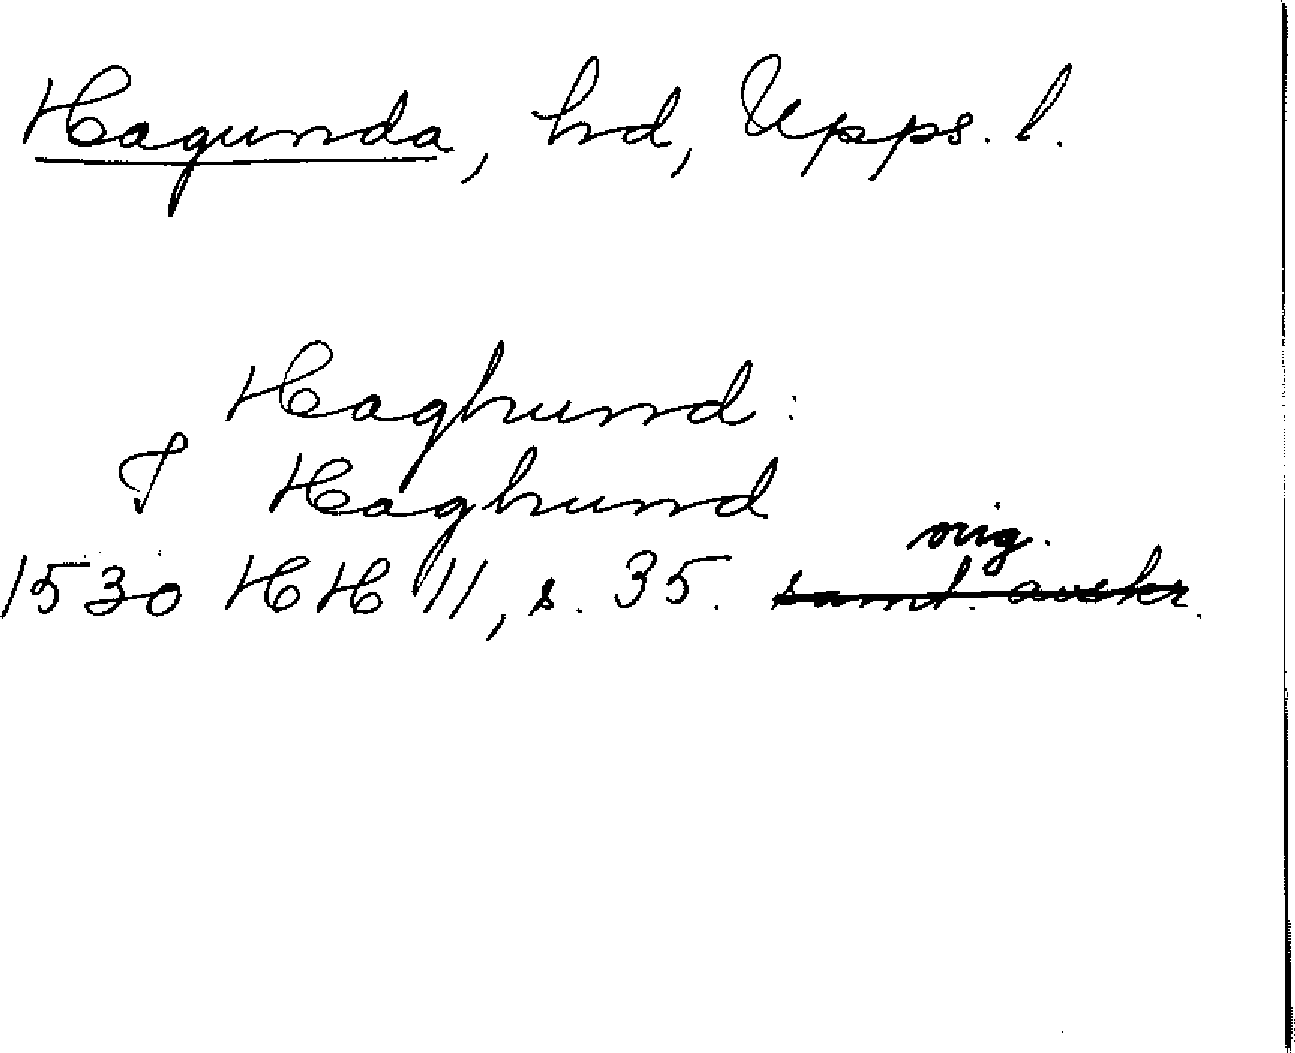 Hagunda, hd, Upps. l.
Haghund:
I Haghund
orig.
1530 HH 11, s. 35. samt. avskr.